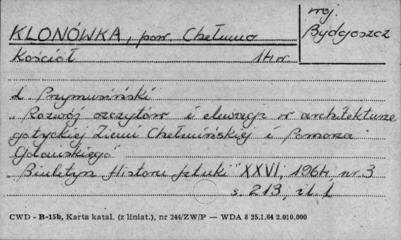 KLONÓWKA, pow. Chełmno
woj. Bydgoszcz
Kościół 14 w.
L. Przymusiński
"Rozwój szczytów i elewacji w architekturze
gotyckiej Ziemi Chełmińskiej i Pomorza
Gdańskiego"
"Biuletyn Historii Sztuki" XXVI, 1964, nr 3
s. 213, il. 1
CWD - B-15b, Karta katal. (z liniat.), nr 244/ZW/P — WDA 8 25.1.64 2.010.000